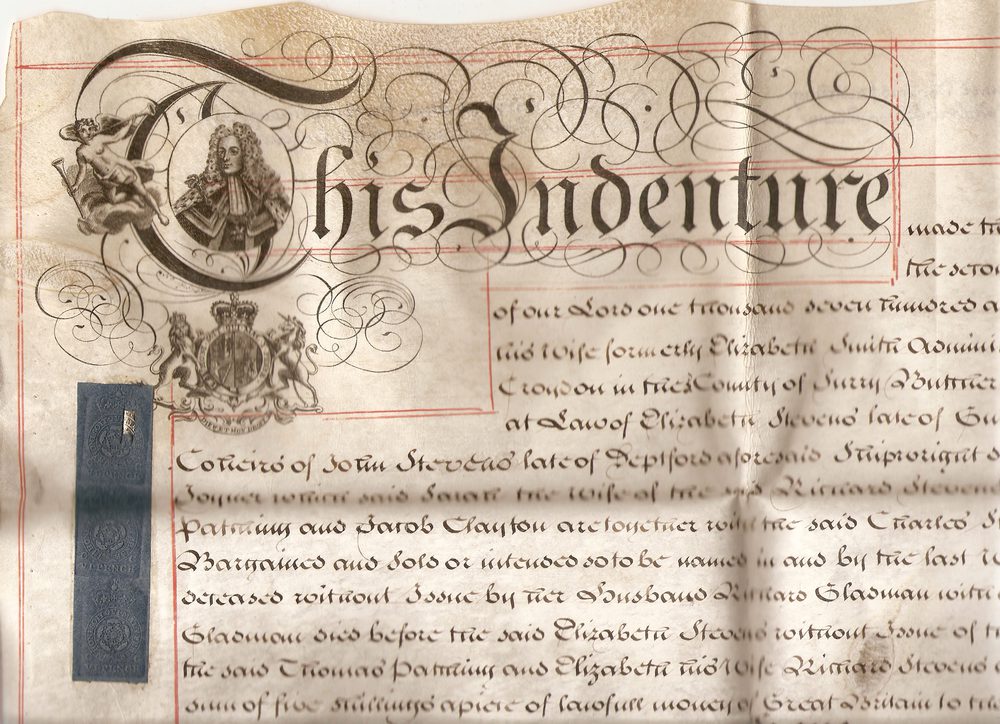 This Indenture made
the
of our Lord one thousand seven hundred
his Wife formerly Elizabeth Smith
Croydon in the County of Surry
at Law of Elizabeth Stevens late of
Coheirs of John Stevens late of Deptford aforesaid Shipwright
Joyner which said Sarah the Wife of the said Richard Stevens
Patching and Jacob Clayton are together with the said Charles
Bargained and Sold or intended so to be named in and by the last
deceased without Issue by her Husband Richard Gladman with
Gladman died before the said Elizabeth Stevens without Issue of
the said Thomas Patching and Elizabeth his Wife Richard Stevens
sum of five shillings apiece of lawfull money of Great Britain to
DIEU ET MON DROIT
VI PENCE
VI PENCE
VI PENCE